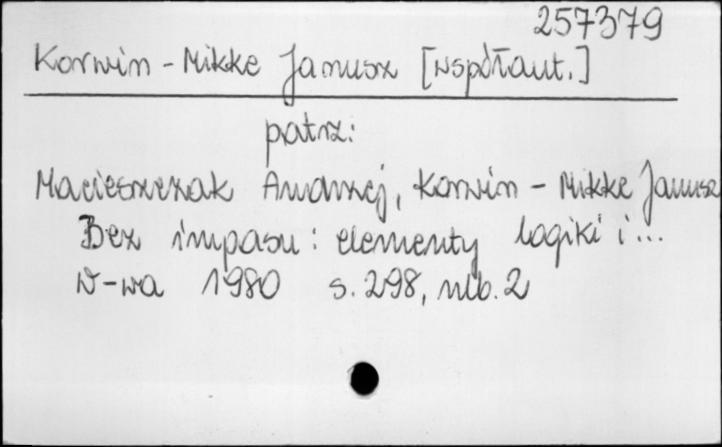 257379
Korwin - Mikke Janusz [współaut.]
patrz:
Macieszczak Andrzej, Korwin - Mikke Janusz
Bez impasu: elementy logiki i...
W-wa 1980 s. 298, nlb. 2